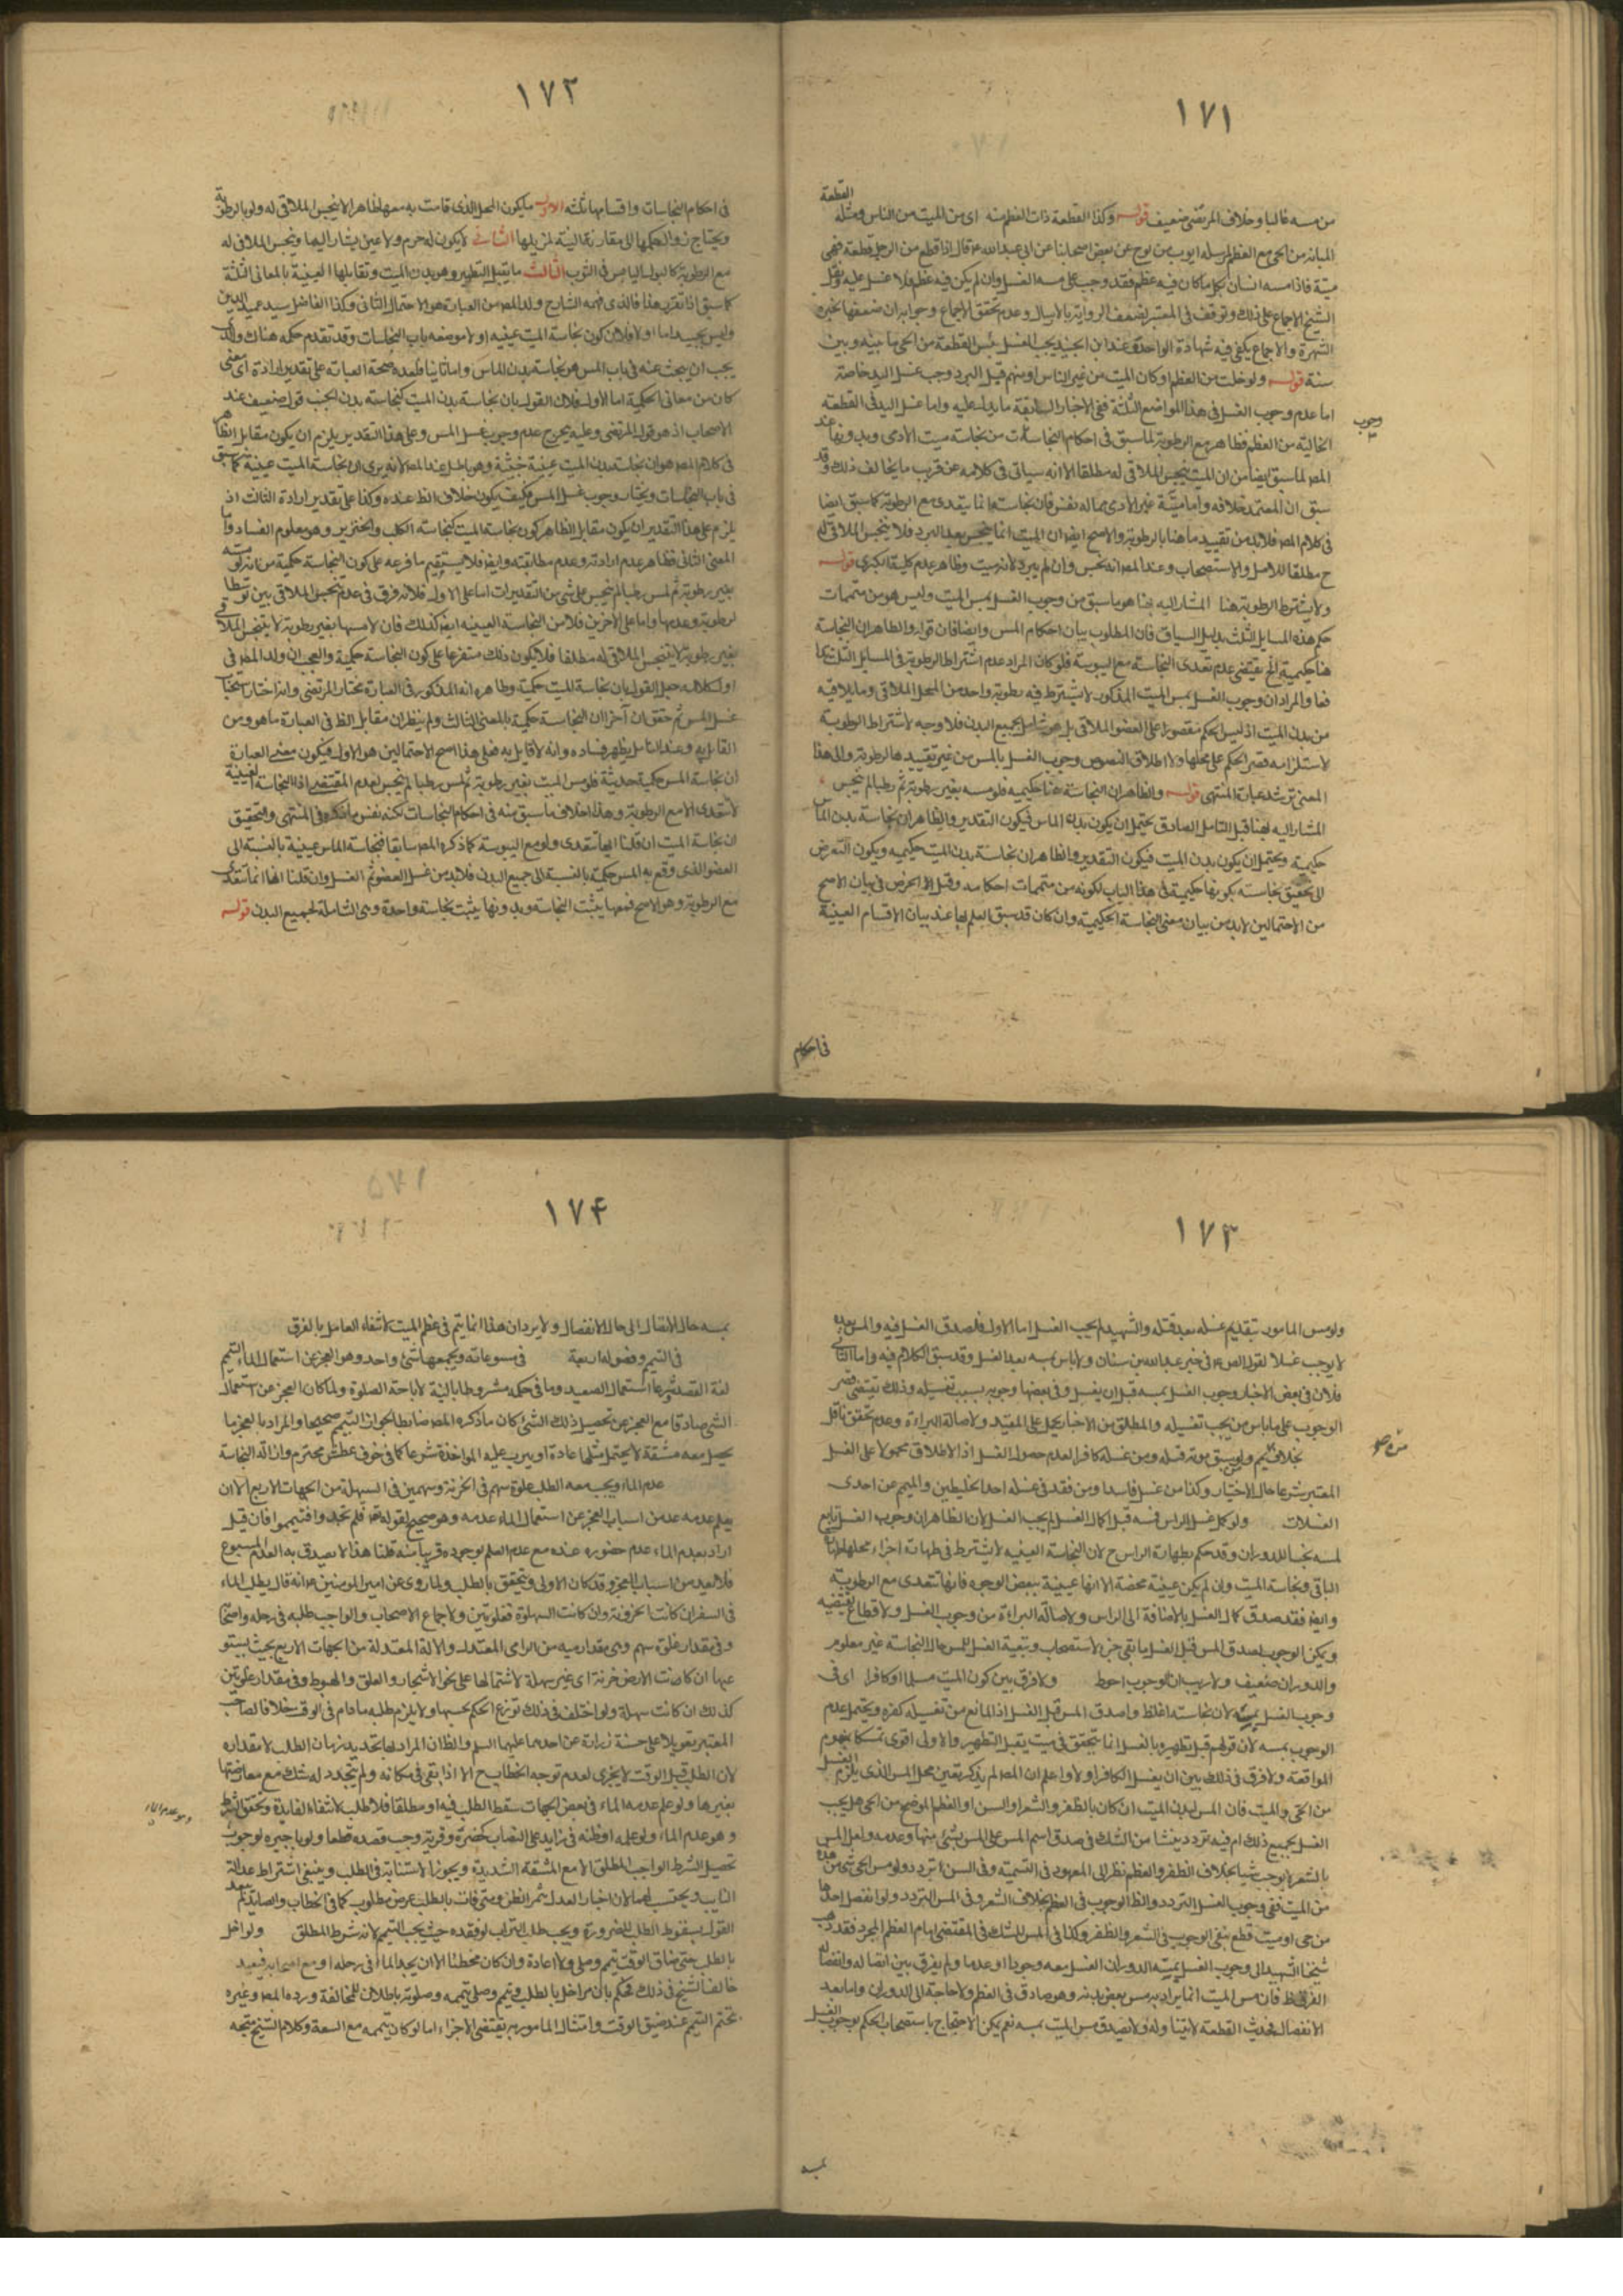 ١٧١
القطعة
من مسه غالبا وخلاف المرتضى ضعيف قوله وكذا القطعة ذات العظم منه اى من الميت من الناس ومثله
المبانة من الحى مع العظم لمرسلة ايوب بن نوح عن بعض اصحابنا عن ابى عبد الله ع قال اذا قطع من الرجل قطعة فهى
ميتة فاذا مسه انسان فكل ما كان فيه عظم فقد وجب على مسه الغسل وان لم يكن فيه عظم فلا غسل عليه ونقل
الشيخ الاجماع على ذلك وتوقف فى المعتبر لضعف الرواية بالارسال وعدم تحقق الاجماع وجوابه ان ضعفها تجبره
الشهرة والاجماع يكفى فيه شهادة الواحد وعند ابن الجنيد يجب الغسل بمس القطعة من الحى ما بينه وبين
سنة قوله ولو خلت من العظم او كان الميت من غير الناس او منهم قبل البرد وجب غسل اليد خاصة
اما عدم وجوب الغسل فى هذا المواضع الثلثة ففى الاخبار السابقة ما يدل عليه واما غسل اليد فى القطعة
وجوب
الخالية من العظم فظاهر مع الرطوبة لما سبق فى احكام النجاسات من نجاسة ميت الادمى وبدونها عند
المصر لما سبق ايضا من ان الميت ينجس الملاقى له مطلقا الا انه سياتى فى كلامه عن قريب ما يخالف ذلك وقد
سبق ان المعتمد خلافه واما ميتة غير الادمى مما له نفس فان نجاسته انما يتعدى مع الرطوبة كما سبق ايضا
فى كلام المصر فلا بد من تقييد ما هنا بالرطوبة والاصح ايضا ان الميت انما ينجس بعد البرد فلا ينجس الملاقى له
ح مطلقا للاصل والاستصحاب وعند المصر انه نجس وان لم يبرد لانه ميت وظاهر عدم كلية الكبرى قوله
ولا يشترط الرطوبة هنا المشار اليه بهنا هو ما سبق من وجوب الغسل بمس الميت وليس هو من متممات
حكم هذه المسايل الثلث بدليل السياق فان المطلوب بيان احكام المس وايضا فان قوله والظاهر ان النجاسة
هنا حكمية الخ يقتضى عدم تعدى النجاسة مع اليبوسة فلو كان المراد عدم اشتراط الرطوبة فى المسايل الثلث
فعا والمراد ان وجوب الغسل بمس الميت المذكور لا يشترط فيه رطوبة واحد من المحل الملاقى وما يلاقيه
من بدن الميت اذ ليس الحكم مقصورا على العضو الملاقى بل هو شامل لجميع البدن فلا وجه لاشتراط الرطوبة
لاستلزامه قصر الحكم على محلها ولاطلاق النصوص وجوب الغسل بالمس من غير تقييدها بالرطوبة والى هذا
المعنى ترشد عبارة المنتهى قوله والظاهر ان النجاسة هنا حكمية فلو مسه بغير رطوبة ثم رطبا لم ينجس
المشار اليه بهنا قبل التامل الصادق يحتمل ان يكون بدن الماس فيكون التقدير والظاهر ان نجاسة بدن الماس
حكمية ويحتمل ان يكون بدن الميت فيكون التقدير والظاهر ان نجاسة بدن الميت حكمية ويكون التعرض
الى تحقيق نجاسته بكونها حكمية فى هذا الباب لكونه من متممات احكامه وقبل الاخر فى بيان الاصح
من الاحتمالين لا بد من بيان معنى النجاسة الحكمية وان كان قد سبق العلم بها عند بيان الاقسام العينية
فى احكام
١٧٢
فى احكام النجاسات واقسامها ثلثه الاول ما يكون المحل الذى قامت به معها طاهرا لا ينجس الملاقى له ولو بالرطوبة
ويحتاج زوال حكمها الى مقارنة النية لمزيلها الثانى لا يكون له جرم ولا عين يشار اليها وينجس الملاقى له
مع الرطوبة كالبول اليابس فى الثوب الثالث ما يقبل التطهير وهو بدن الميت وتقابلها العينية بالمعانى الثلثة
كما سبق اذا تقرر هذا فالذى فهمه الشارح ولد المصر من العبارة هو الاحتمال الثانى وكذا الفاضل السيد عميد الدين
وليس بجيد اما اولا فلان كون نجاسة الميت عينية او لا موضعه باب النجاسات وقد تقدم حكمه هناك والذى
يجب ان يبحث عنه فى باب المس هو نجاسة بدن الماس واما ثانيا فلعدم صحة العبارة على تقدير ارادة اى معنى
كان من معانى الحكمية اما الاول فلان القول بان نجاسة بدن الميت كنجاسة بدن الجنب قول ضعيف عند
الاصحاب اذ هو قول المرتضى وعليه يخرج عدم وجوب غسل المس وعلى هذا التقدير يلزم ان يكون مقابل الظاهر
فى كلام المصر هو ان نجاسة بدن الميت عينية خبثية وهو باطل عند المصر لانه يرى ان نجاسة الميت عينية كما سبق
فى باب النجاسات ويختار وجوب غسل المس فكيف يكون خلاف الظ عنده وكذا على تقدير ارادة الثالث اذ
يلزم على هذا التقدير ان يكون مقابل الظاهر كون نجاسة الميت كنجاسة الكلب والخنزير وهو معلوم الفساد واما
المعنى الثانى فظاهر عدم ارادته وعدم مطابقته وايضا فلا يستقيم ما فرعه على كون النجاسة حكمية من انه لو مسه
بغير رطوبة ثم لمس رطبا لم ينجس على شئ من التقديرات اما على الاول فلانه لا فرق فى عدم تنجس الملاقى بين توسط
الرطوبة وعدمها واما على الاخرين فلا من النجاسة العينية ايضا كذلك فان لامسها بغير رطوبة لا ينجس الملاقى
بغير رطوبة لا ينجس الملاقى له مطلقا فلا يكون ذلك متفرعا على كون النجاسة حكمية والعجب ان ولد المصر فى
اول كلامه جعل القول بان نجاسة الميت حكمية وظاهره انه المذكور فى العبارة مختار المرتضى وانه اختار استحباب
غسل المس ثم حقق ان آخرا ان النجاسة حكمية بالمعنى الثالث ولم ينظر ان مقابل الظ فى العبارة ما هو ومن
القايل به وعند التامل يظهر فساده وانه لا قايل به فعلى هذا اصح الاحتمالين هو الاول فيكون معنى العبارة
ان نجاسة المس حكمية حدثية فلو مس الميت بغير رطوبة ثم لمس رطبا لم ينجس لعدم المقتضى اذ النجاسة العينية
لا تتعدى الا مع الرطوبة وهذا خلاف ما سبق منه فى احكام النجاسات لكنه نفس ما ذكره فى المنتهى والتحقيق
ان نجاسة الميت ان قلنا انها تتعدى ولو مع اليبوسة كما ذكره المصر سابقا فنجاسة الماس عينية بالنسبة الى
العضو الذى وقع به المس حكمية بالنسبة الى جميع البدن فلا بد من غسل العضو ثم الغسل وان قلنا انها انما تتعدى
مع الرطوبة وهو الاصح فمعها يثبت النجاسة وبدونها يثبت نجاسة واحدة وهى الشاملة لجميع البدن قوله
١٧٣
ولو مس المامور بتقديم غسله بعد قتله والشهيد لم يجب الغسل اما الاول فلصدق الغسل فيه والمس بعده
لا يوجب غسلا لقول الص ع فى خبر عبد الله بن سنان ولا باس بمسه بعد الغسل وقد سبق الكلام فيه واما الثانى
فلان فى بعض الاخبار وجوب الغسل بمسه قبل ان يغسل وفى بعضها وجوبه بسبب تغسيله وذلك يقتضى قصر
الوجوب على ما باس من يجب تغسيله والمطلق من الاخبار يحمل على المقيد ولاصالة البراءة وعدم تحقق ناقل
بخلاف من يمم ولو سبق موته قتله ومن غسله كافر لعدم حصول الغسل اذ الاطلاق محمول على الغسل
المعتبر شرعا حال الاختيار وكذا من غسل فاسدا ومن فقد فى غسله احد الخليطين والميمم عن احدى
الغسلات ولو كمل غسل الراس فمسه قبل اكمال الغسل لم يجب الغسل لان الظاهر ان وجوب الغسل تابع
لمسه نجسا للدوران وقد حكم بطهارة الراس ح لان النجاسة العينية لا يشترط فى طهارة اجزاء محلها طهارة
الباقى ونجاسة الميت وان لم يكن عينية محضة الا انها عينية ببعض الوجوه فانها تتعدى مع الرطوبة
وايضا فقد صدق كمال الغسل بالاضافة الى الراس ولاصالة البراءة من وجوب الغسل ولا قطاع يقتضيه
ويمكن الوجوب لصدق المس قبل الغسل ما بقى جزء لاستصحاب وتبعية الغسل للمس حال النجاسة غير معلوم
والدوران ضعيف ولا ريب ان الوجوب احوط ولا فرق بين كون الميت مسلما او كافرا اى فى
وجوب الغسل بمسه لان نجاسته اغلظ ولصدق المس قبل الغسل اذ المانع من تغسيله كفره ويحتمل عدم
الوجوب بمسه لان قولهم قبل تطهيره بالغسل انما يتحقق فى ميت يقبل التطهير والاولى اقوى تمسكا بمفهوم
الموافقة ولا فرق فى ذلك بين ان يغسل الكافر او لا واعلم ان المصر لم يذكر تعين محل المس الذى يلزم به الغسل
من الحى والميت فان المس لبدن الميت ان كان بالظفر والشعر او السن او العظم الموضح من الحى هل يجب
الغسل بجميع ذلك ام فيه تردد ينشا من الشك فى صدق اسم المس على المس بشئ منها وعدمه ولعل المس
بالشعر لا يوجب شيئا بخلاف الظفر والعظم نظرا الى المعهود فى التسمية وفى السن التردد ولو مس الحى شئ من هذه
من الميت ففى وجوب الغسل التردد والظ الوجوب فى العظم بخلاف الشعر وفى المس التردد ولو انفصل احدها
من حى او ميت قطع بنفى الوجوب فى الشعر والظفر وكذا فى المس للشك فى المقتضى اما العظم المجرد فقد ذهب
شيخنا الشهيد الى وجوب الغسل بمسه لدوران الغسل معه وجودا وعدما ولم يفرق بين اتصاله وانفصاله
الفرق ظ فان مس الميت انما يراد به مس بعض بدنه وهو صادق فى العظم ولا حاجة الى الدوران واما بعد
الانفصال فحديث القطعة لا يتناوله ولا يصدق مس الميت بمسه نعم يمكن الاحتجاج باستصحاب الحكم بوجوب الغسل
بمسه
١٧٤
بمسه حال الاتصال الى حال الانفصال ولا يرد ان هذا انما يتم فى عظم الميت لانتفاء العامل بالفرق
فى التيمم وفصوله اربعة فى مسوغاته ويجمعها شئ واحد وهو العجز عن استعمال الماء التيمم
لغة القصد وشرعا استعمال الصعيد وما فى حكمه مشروطا بالنية لاباحة الصلوة ولما كان العجز عن استعمال
الشئ صادقا مع العجز عن تحصيل ذلك الشئ كان ما ذكره المصر ضابطا لجواز التيمم صحيحا والمراد بالعجز ما
يحصل معه مشقة لا يحتمل مثلها عادة او يترتب عليه المواخذة شرعا كما فى خوف عطش محترم وازالة النجاسة
عدم الماء ويجب معه الطلب غلوة سهم فى الحزنة وسهمين فى السهلة من الجهات الاربع الا ان
يعلم عدمه عد من اسباب العجز عن استعمال الماء عدمه وهو صحيح لقوله تعا فلم تجدوا فتيمموا فان قيل
اراد بعدم الماء عدم حضوره عنده مع عدم العلم بوجوده قريبا منه قلنا هذا لا يصدق به العدم المسبوغ
فلا يعد من اسباب العجز وقد كان الاولى ويتحقق بالطلب ولما روى عن امير المومنين ع انه قال يطلب الماء
فى السفر ان كانت الحزونة وان كانت السهولة فغلوتين ولاجماع الاصحاب والواجب طلبه فى رحله واصحابه
وفى مقدار غلوة سهم وهى مقدار رميه من الرامى المعتدل والالة المعتدلة من الجهات الاربع بحيث يستو
عبها ان كانت الارض حزنة اى غير سهلة لاشتمالها على نحو الاشجار والعلو والهبوط وفى مقدار غلوتين
كذلك ان كانت سهلة ولو اختلف فى ذلك توزع الحكم بحسبها ولا يلزم طلبه ما دام فى الوقت خلافا لصاحب
المعتبر تعويلا على حسنة زرارة عن احدهما عليهما السلم والظ ان المراد بها تحديد زمان الطلب لا مقداره
لان الطلب قبل الوقت لا يجزى لعدم توجه الخطاب ح الا اذا بقى فى مكانه ولم يتجدد له شك مع معارضتها
بغيرها ولو علم عدمه الماء فى بعض الجهات سقط الطلب فيه او مطلقا فلا طلب لانتفاء الفايدة وتحقق الشرط
وهو عدم الماء
وهو عدم الماء ولو علمه او ظنه فى زايد على النصاب كخضرة وقرية وجب قصده قطعا ولو باجيره لوجوب
تحصيل الشرط الواجب المطلق الا مع المشقة الشديدة ويجوز الاستنابة فى الطلب وينبغى اشتراط عدالة
النايب ويحتسب لهما لان اخبار العدل يثمر الظن ومتى فات بالطلب غرض مطلوب كما فى الحطاب والصايد
القول بسقوط الطلب للضرورة ويجب طلب التراب لو فقده حيث يجب التيمم لانه شرط المطلق ولو اخل
بالطلب حتى ضاق الوقت تيمم وصلى ولا اعادة وان كان مخطئا الا ان يجد الماء فى رحله او مع اصحابه فيعيد
خالف الشيخ فى ذلك فحكم بان من اخل بالطلب وتيمم وصلى تيممه وصلوته باطلان للمخالفة ورده المصر وغيره
بتحتم التيمم عند ضيق الوقت وامتثال المامور به يقتضى الاجزاء اما لو كان تيممه مع السعة وكلام الشيخ متجه